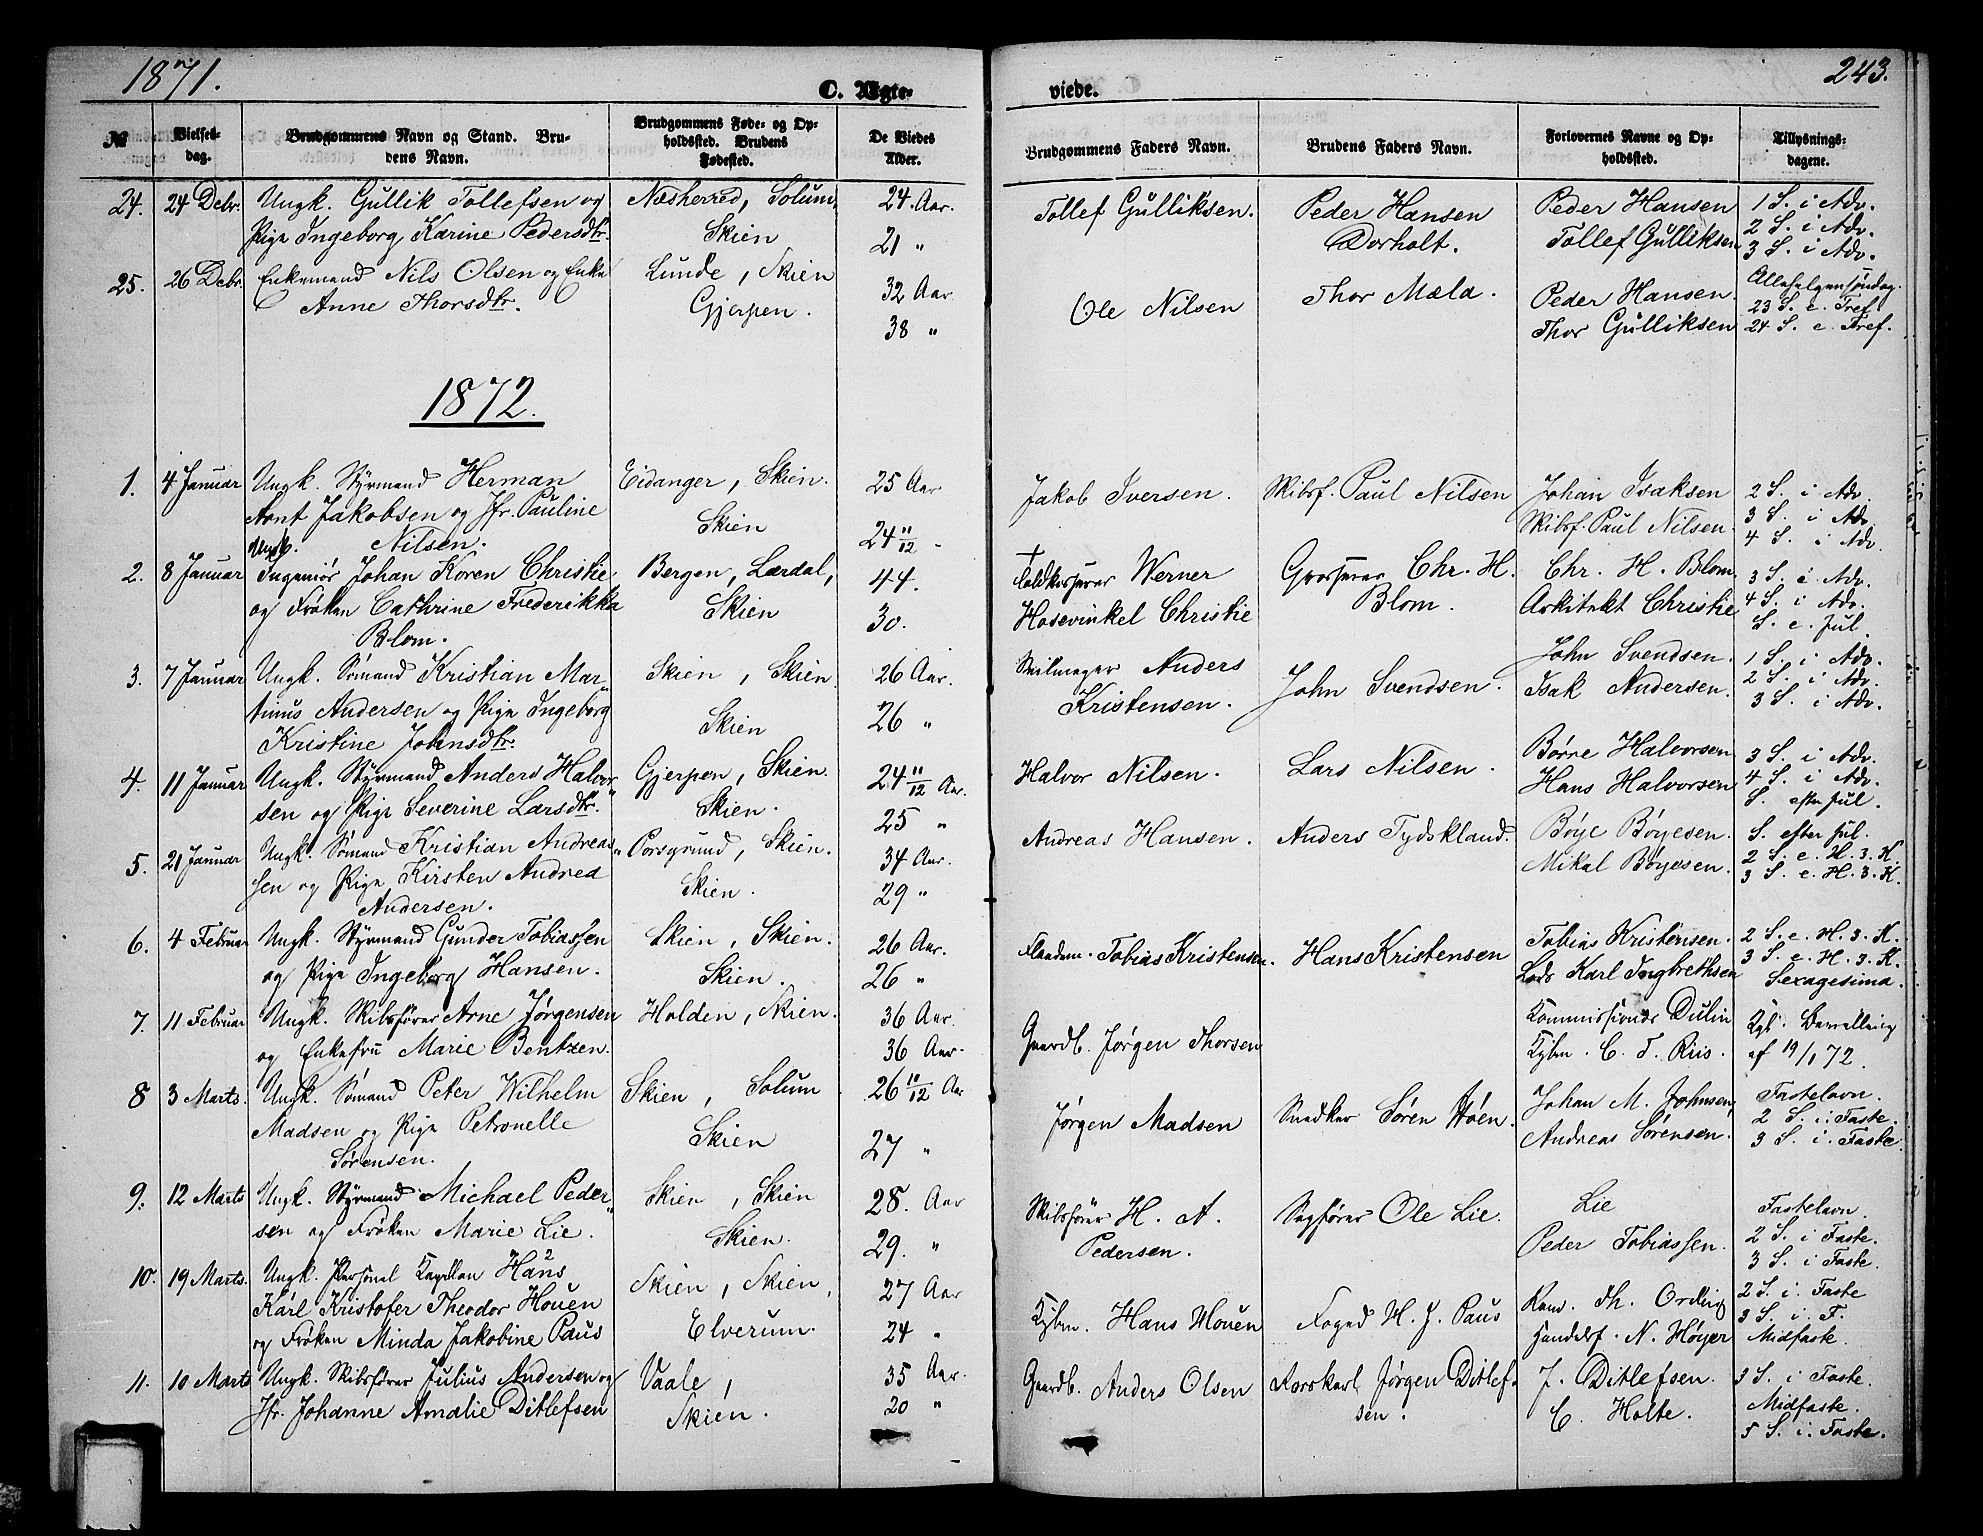 1871.
C. Ægte-
viede.
243.
No
Vielses-
dag.
Brudgommens Navn og Stand. Bru-
dens Navn.
Brudgommens Føde- og Op-
holdssted. Brudens
Fødested.
De Viedes
Alder.
Brudgommens Faders Navn.
Brudens Faders Navn.
Forlovernes Navne og Op-
holdssted.
Tillysnings-
dagene.
24.
24 Debr.
Ungk. Gullik Tollefsen og
Pige Ingeborg Karine Pedersdtr.
Næsherred, Solum,
Skien
24. Aar.
21 "
Tollef Gulliksen.
Peder Hansen
Dorholt.
Peder Hansen
Tollef Gulliksen
1 S. i Adv.
2 S. i Adv.
3 S. i Adv.
25.
26 Debr.
Enkemand Nils Olsen og Enke
Anne Thorsdtr.
Lunde, Skien
Gjerpen.
32 Aar
38 "
Ole Nilsen
Thor Mæla.
Peder Hansen.
Thor Gulliksen
Allehelgensøndag.
23 S. e. Tref.
24 S. e. Tref.
1872.
1.
4 Januar
Ungk. Styrmand Herman
Arnt Jakobsen og Jfr. Pauline
Nilsen.
Eidanger, Skien.
Skien
25 Aar
24 11/12 "
Jakob Iversen.
Skibsf. Paul Nilsen
Johan Isaksen
Skibsf. Paul Nilsen.
2 S. i Adv.
3 S. i Adv.
4 S. i Adv.
2.
8 Januar
Ungk.
Ingeniör Johan Koren Christie
og Frøken Cathrine Frederikka
Blom.
Bergen, Lærdal,
Skien
44.
30.
†
Toldkasserer Werner
Hosevinkel Christie
Grosserer Chr. H.
Blom.
Chr. H. Blom.
Arkitekt Christie
3 S. i Adv.
4 S. i Adv.
S. e. Jul.
3.
7 Januar
Ungk. Sømand Kristian Mar-
tinus Andersen og Pige Ingeborg
Kristine Johnsdtr.
Skien, Skien.
Skien
26 Aar.
26 "
Seilmager Anders
Kristensen.
John Svendsen.
John Svendsen.
Isak Andersen.
1 S. i Adv.
2 S. i Adv.
3 S. i Adv.
4.
11 Januar
Ungk. Styrmand Anders Halvor-
sen og Pige Severine Larsdtr.
Gjerpen, Skien.
Skien.
24 11/12 Aar.
25 "
Halvor Nilsen.
Lars Nilsen.
Børre Halvorsen
Hans Halvorsen
3 S. i Adv.
4 S. i Adv.
S. efter Jul.
5.
21 Januar
Ungk. Sømand Kristian Andreas-
sen og Pige Kirsten Andrea
Andersen.
Porsgrund, Skien.
Skien.
34 Aar.
29 "
Andreas Hansen.
Anders Tydskland.
Böye Böyesen.
Mikal Böyesen.
S. efter Jul.
2 S. e. H. 3. K.
3 S. e. H. 3. K.
6.
4 Februar
Ungk. Styrmand Gunder Tobiassen
og Pige Ingeborg Hansen.
Skien, Skien.
Skien.
26 Aar.
26 "
Tobias Kristensen.
Hans Kristensen
Tobias Kristensen.
Lods Karl Ingbrethsen
2 S. e. H. 3. K.
3 S. e. H. 3. K.
Sexagesima.
7.
11 Februar
Ungk. Skibsfører Arne Jørgensen
og Enkefru Marie Bentzen.
Holden, Skien.
36 Aar.
36 Aar.
Gaardb. Jørgen Thorsen
Kommissionær Dulin
Kjbm. C. T. Riis.
Kgb. Bevilling
af 19/1 72.
8
3 Marts.
Ungk. Sømand Peter Wilhelm
Madsen og Pige Petronelle
Sørensen.
Skien, Solum
Skien
26 10/12 Aar
27 "
Jørgen Madsen
Snedker Søren Høen.
Johan M. Johnsen,
Andreas Sørensen.
Fastelavn.
2 S. i. Faste.
3 S. i. Faste
9.
12 Marts
Ungk. Styrmand Michael Peder-
sen og Frøken Marie Lie.
Skien, Skien
Skien.
28. Aar
29. "
Skibsförer H. A.
Pedersen.
Sagfører Ole Lie.
Lie
Peder Tobiassen.
Fastelavn.
2 S. i Faste.
3 S. i Faste.
10.
19 Marts.
Ungk. Personel Kapellan Hans
Karl Kristofer Theodor Houen
og Frøken Minda Jakobine Paus
Skien, Skien,
Elverum.
27 Aar
24 "
Kjbm. Hans Houen
Foged H. J. Paus
Kand. Th. Ording
Handelsf. N. Høyer
2 S. i. Faste
3 S. i. F.
Midfaste.
11.
10 Marts
Ungk. Skibsfører Julius Andersen og
Jfr. Johanne Amalie Ditlefsen
Vaale,
Skien.
35 Aar.
20 "
Gaardb. Anders Olsen
Jørgen Ditlef-
sen.
J. Ditlefsen.
C. Holte.
3 S. i Faste.
Midfaste.
5 S. i. Faste.